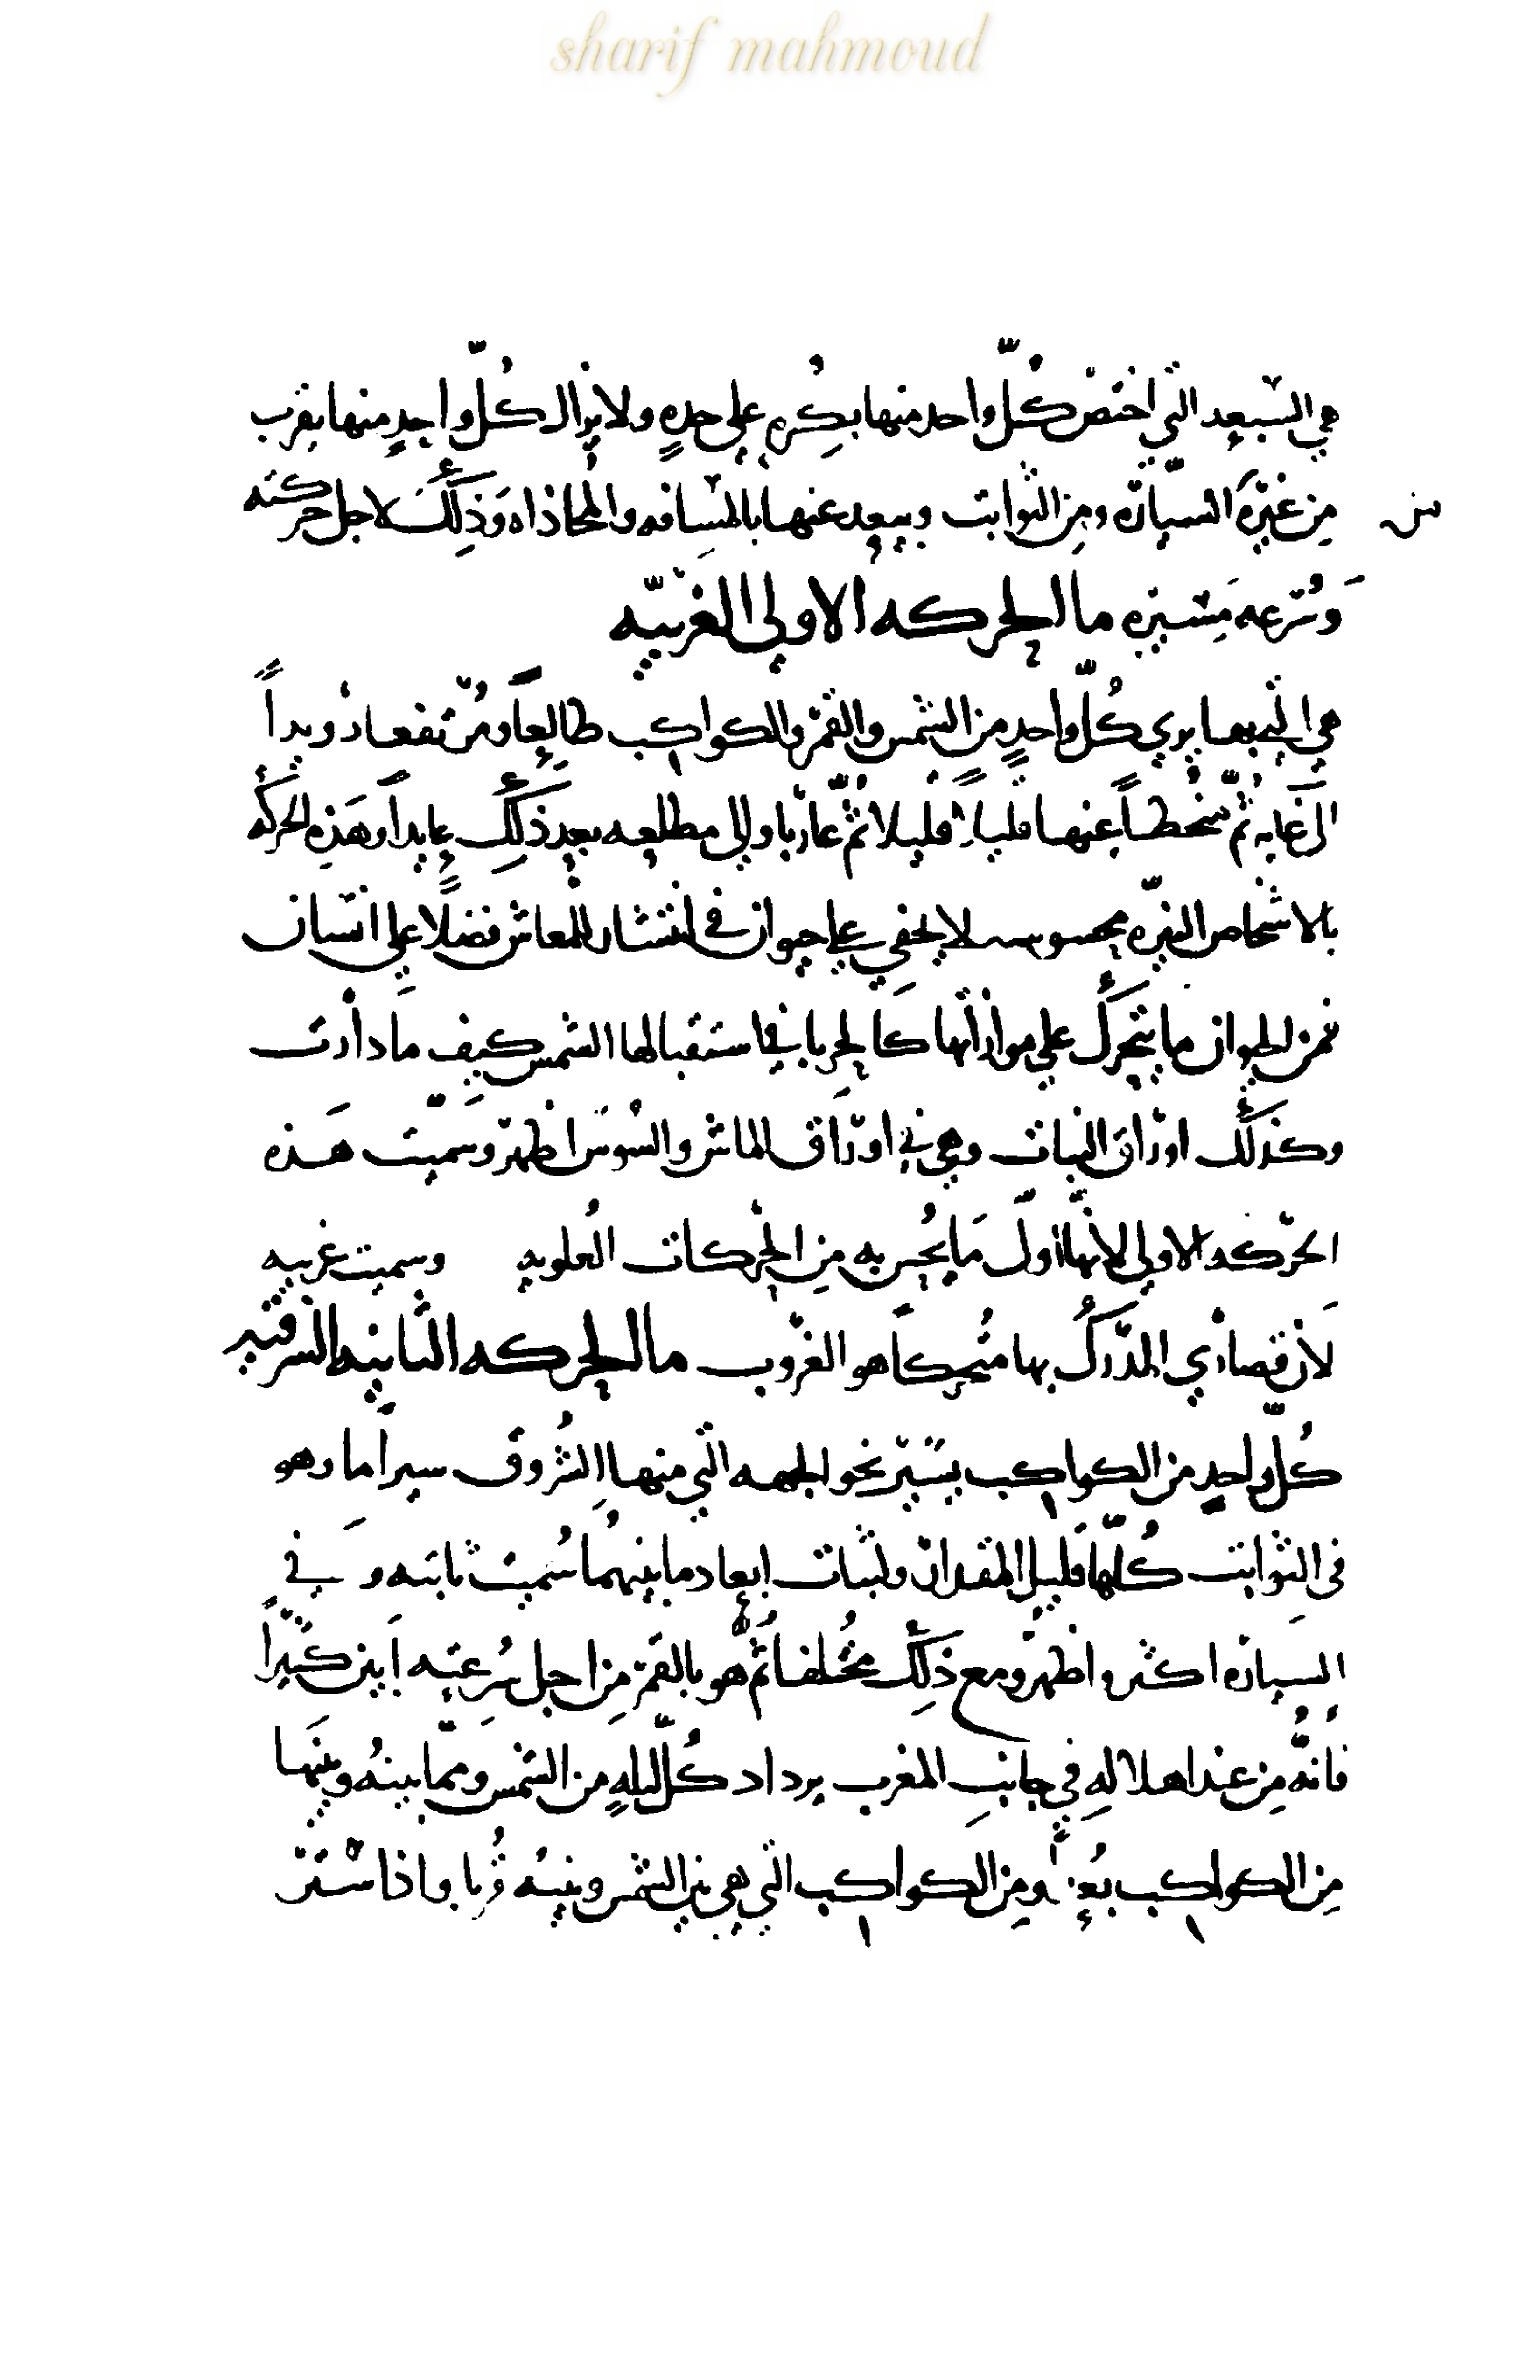 sharif mahmoud
هي السبعه التي اختص كُلّ واحد منها بكره على حدهٍ ولا يزال كُلّ واحدٍ منها يقرب
مِن غيره السيّاره ومِن الثوابت ويبعد عنها بالمسافه والمُحاذاه وَذلِكَ لاجل حركته
وسُرعه مسيره ما الحركه الاولى الغربيّه
هي التي بها يرى كُلّ واحدٍ مِن الشمس والقمر والكواكب طالِعاً ومُرتفعا رويداً
الى غايه ثُمّ منحُطاً عنها قليلاً قليلا ثُمّ غاربا والى مطلعه بعد ذلِك عايداً وهَذِه الحركه
بالاشخاص النيّره محسوسه لا يخفى على حيوان في انتشار للمعاش فضلًا على انسان
فمن الحيوان ما يتحرك على موازاتها كالحِربا في استقبالها الشمس كيف ما دارت
وكذلك اوراق النبات وهي في اوراق الماش والسوسَن اظهر وسمّيت هَذه
الحركه الاولى لانها اوّل مَا يُحس به مِن الحركات العُلويه وسميت غربيه
لاَن قصارى المدَرَك بها مُتحركاً هو الغروب ما الحركه الثانيه الشرقيه
كُلّ واحدٍ من الكواكب يسير نحو الجهه التي منها الشُروق سيراً ما وهو
في الثوابت كُلّها قليل المقدار ولثبات ابعاد ما بينهُما سُميت ثابته و في
السياره اكثر واظهر ومع ذلِك مُختلفا ثُمّ هو بالقمر مِن اجل سُرعته اَبين كثيراً
فانهُ مِن عند اهلالهِ في جانبِ المغرب يزداد كُلّ ليلهٍ من الشمس ومّما بينهُ وبينَها
مِن الكواكب بُعداً ومِن الكواكب التي هي بين الشمس وبينهُ قُربا واذا ستر